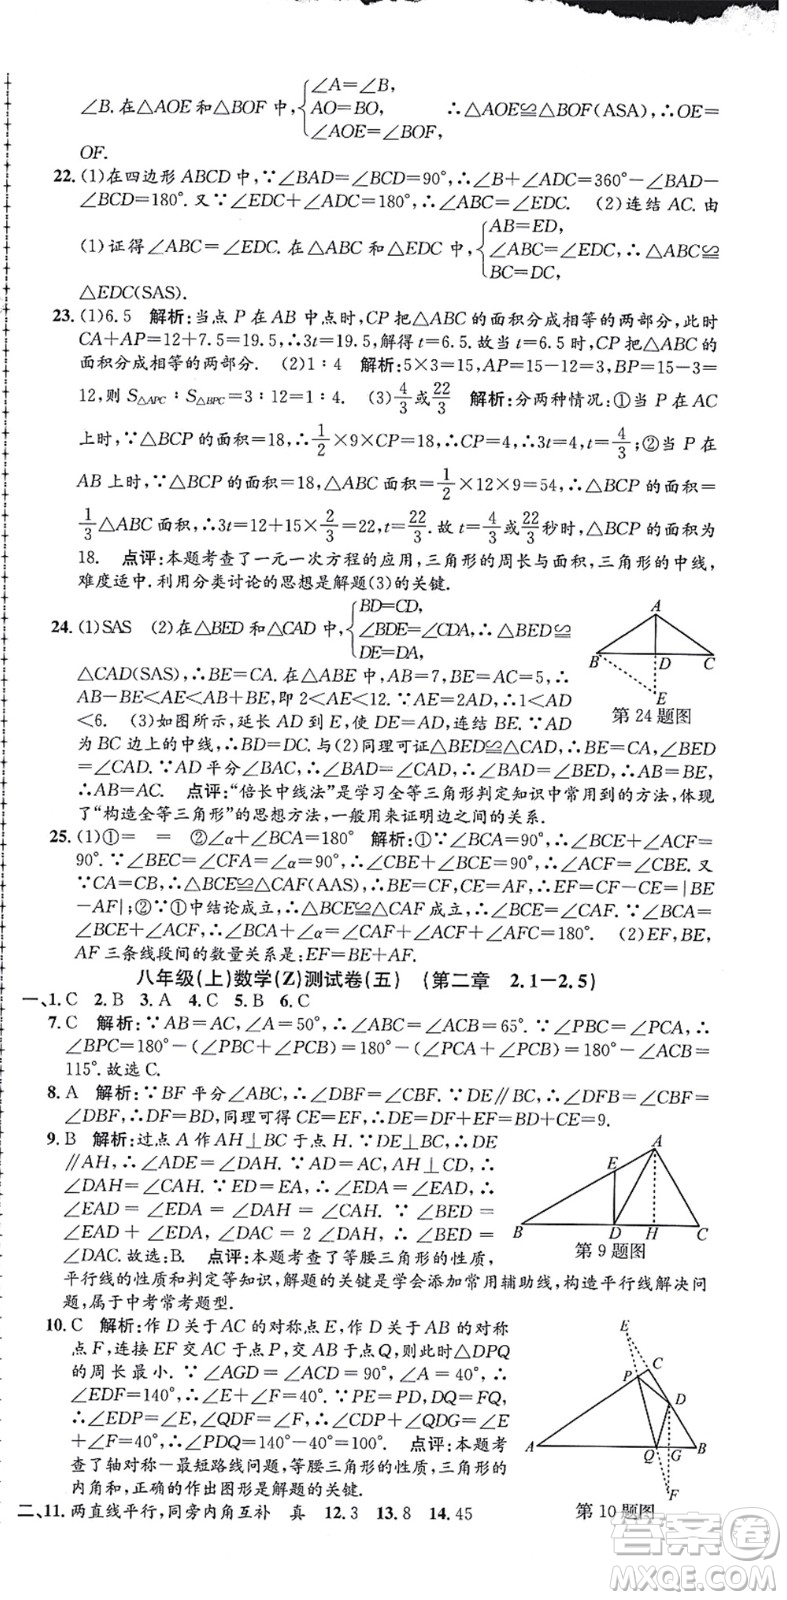 ∠B.在△AOE和△BOF中,{∠A=∠B, AO=BO, ∠AOE=∠BOF, ∴△AOE≌△BOF(ASA),∴OE=
OF.
22.(1)在四边形ABCD中,∵∠BAD=∠BCD=90°,∴∠B+∠ADC=360°-∠BAD-
∠BCD=180°.又∵∠EDC+∠ADC=180°,∴∠ABC=∠EDC. (2)连结AC.由
(1)证得∠ABC=∠EDC.在△ABC和△EDC中,{AB=ED, ∠ABC=∠EDC, BC=DC, ∴△ABC≌
△EDC(SAS).
23.(1)6.5 解析:当点P在AB中点时,CP把△ABC的面积分成相等的两部分,此时
CA+AP=12+7.5=19.5,∴3t=19.5,解得t=6.5.故当t=6.5时,CP把△ABC的
面积分成相等的两部分. (2)1∶4 解析:5×3=15,AP=15-12=3,BP=15-3=
12,则S△APC∶S△BPC=3∶12=1∶4. (3)4/3或22/3 解析:分两种情况:①当P在AC
上时,∵△BCP的面积=18,∴1/2×9×CP=18,∴CP=4,∴3t=4,t=4/3;②当P在
AB上时,∵△BCP的面积=18,△ABC的面积=1/2×12×9=54,∴△BCP的面积=
1/3△ABC面积,∴3t=12+15×2/3=22,t=22/3.故t=4/3或22/3秒时,△BCP的面积为
18. 点评:本题考查了一元一次方程的应用,三角形的周长与面积,三角形的中线,
难度适中.利用分类讨论的思想是解题(3)的关键.
24.(1)SAS (2)在△BED和△CAD中,{BD=CD, ∠BDE=∠CDA, DE=DA, ∴△BED≌
△CAD(SAS),∴BE=CA.在△ABE中,AB=7,BE=AC=5,∴
AB-BE<AE<AB+BE,即2<AE<12.∵AE=2AD,∴1<AD
<6. (3)如图所示,延长AD到E,使DE=AD,连结BE.∵AD
为BC边上的中线,∴BD=DC.与(2)同理可证△BED≌△CAD,∴BE=CA,∠E=
∠CAD.∵AD平分∠BAC,∴∠BAD=∠CAD,∴∠BAD=∠E,∴AB=BE,∴
AB=AC. 点评:“倍长中线法”是学习全等三角形判定知识中常用到的方法,体现
了“构造全等三角形”的思想,一般用来证明边之间的关系.
A
B
D
C
E
第24题图
25.(1)①= = ②∠α+∠BCA=180° 解析:①∵∠BCA=90°,∴∠BCE+∠ACF=
90°.∵∠BEC=∠CFA=∠α=90°,∴∠BCE+∠CBE=90°,∴∠CBE=∠ACF.又
∵CA=CB,∴△BCE≌△CAF(AAS),∴BE=CF,CE=AF,∴EF=CF-CE=|BE
-AF|;②∵①中结论成立,∴△BCE≌△CAF成立,∴∠BCE=∠CAF.∵∠BCA=
∠BCE+∠ACF,∴∠α+∠BCA=180°. (2)当∠BCA=∠α时,EF,BE,
AF三条线段间的数量关系是:EF=BE+AF.
八年级(上)数学(Z)测试卷(五) (第二章 2.1-2.5)
一、1.C 2.B 3.A 4.C 5.B 6.C
7.C 解析:∵AB=AC,∠A=50°,∴∠ACB=∠ABC=65°.∵∠PBC=∠PCA,∴
∠BPC=180°-(∠PBC+∠PCB)=180°-(∠PCA+∠PCB)=180°-∠ACB=
115°.故选C.
8.A 解析:∵BF平分∠ABC,∴∠DBF=∠CBF.∵DE∥BC,∴∠DFB=∠CBF=
∠DBF,∴DF=DB,同理可得CE=EF,∴DB+CE=DF+EF=DE=9.
9.B 解析:过点A作AH⊥BC于点H.∵DE⊥BC,∴DE
∥AH,∴∠ADE=∠DAH.∵AD=AC,AH⊥CD,∴
∠DAH=∠CAH.∵ED=EA,∴∠EDA=∠EAD,∴
∠EDA=∠EAD=∠DAH=∠CAH.∵∠BED=
∠EDA+∠EAD,∠DAC=2∠DAH,∴∠BED=
∠DAC.故选:B. 点评:本题考查了等腰三角形的性质,
平行线的性质和判定等知识,解题的关键是学会添加常用辅助线,构造平行线解决问
题,属于中考常考题型.
A
E
B
D
H
C
第9题图
10.C 解析:作D关于AC的对称点E,作D关于AB的对称
点F,连接EF交AC于P,交AB于Q,此时△DPQ
的周长最小.∵∠AGD=∠ACD=90°,∠A=40°,∴
∠EDF=140°,∴∠E+∠F=40°.∵PE=PD,DQ=FQ,
∴∠EDP=∠E,∠QDF=∠F,∴∠CDP+∠QDG=∠E
+∠F=40°,∴∠PDQ=140°-40°=100°. 点评:本题考
查了轴对称-最短路线问题,等腰三角形的性质,三角形的
内角和,正确的作出图形是解题的关键.
E
P
C
D
A
Q
G
B
F
第10题图
二、11.两直线平行,同旁内角互补 真 12.3 13.8 14.45
答案圈
MXQE.COM